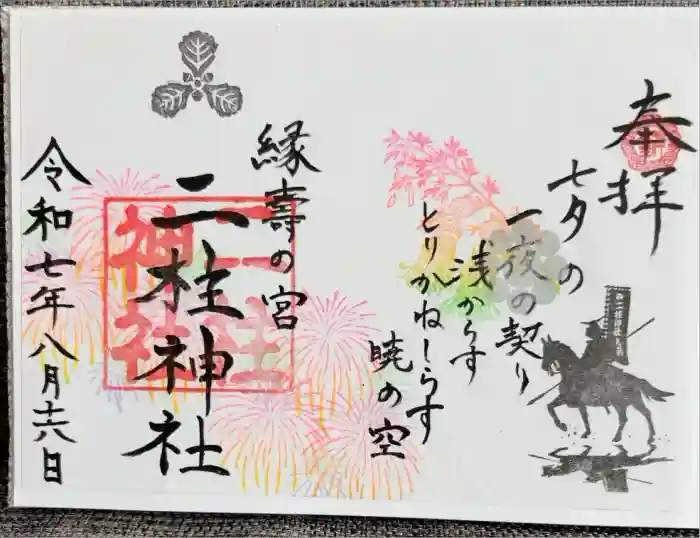 奉拝
七夕の
一夜の契り
浅からす
とりかねしらす
暁の空
縁壽の宮
二柱神社
二柱神社
令和七年八月十六日